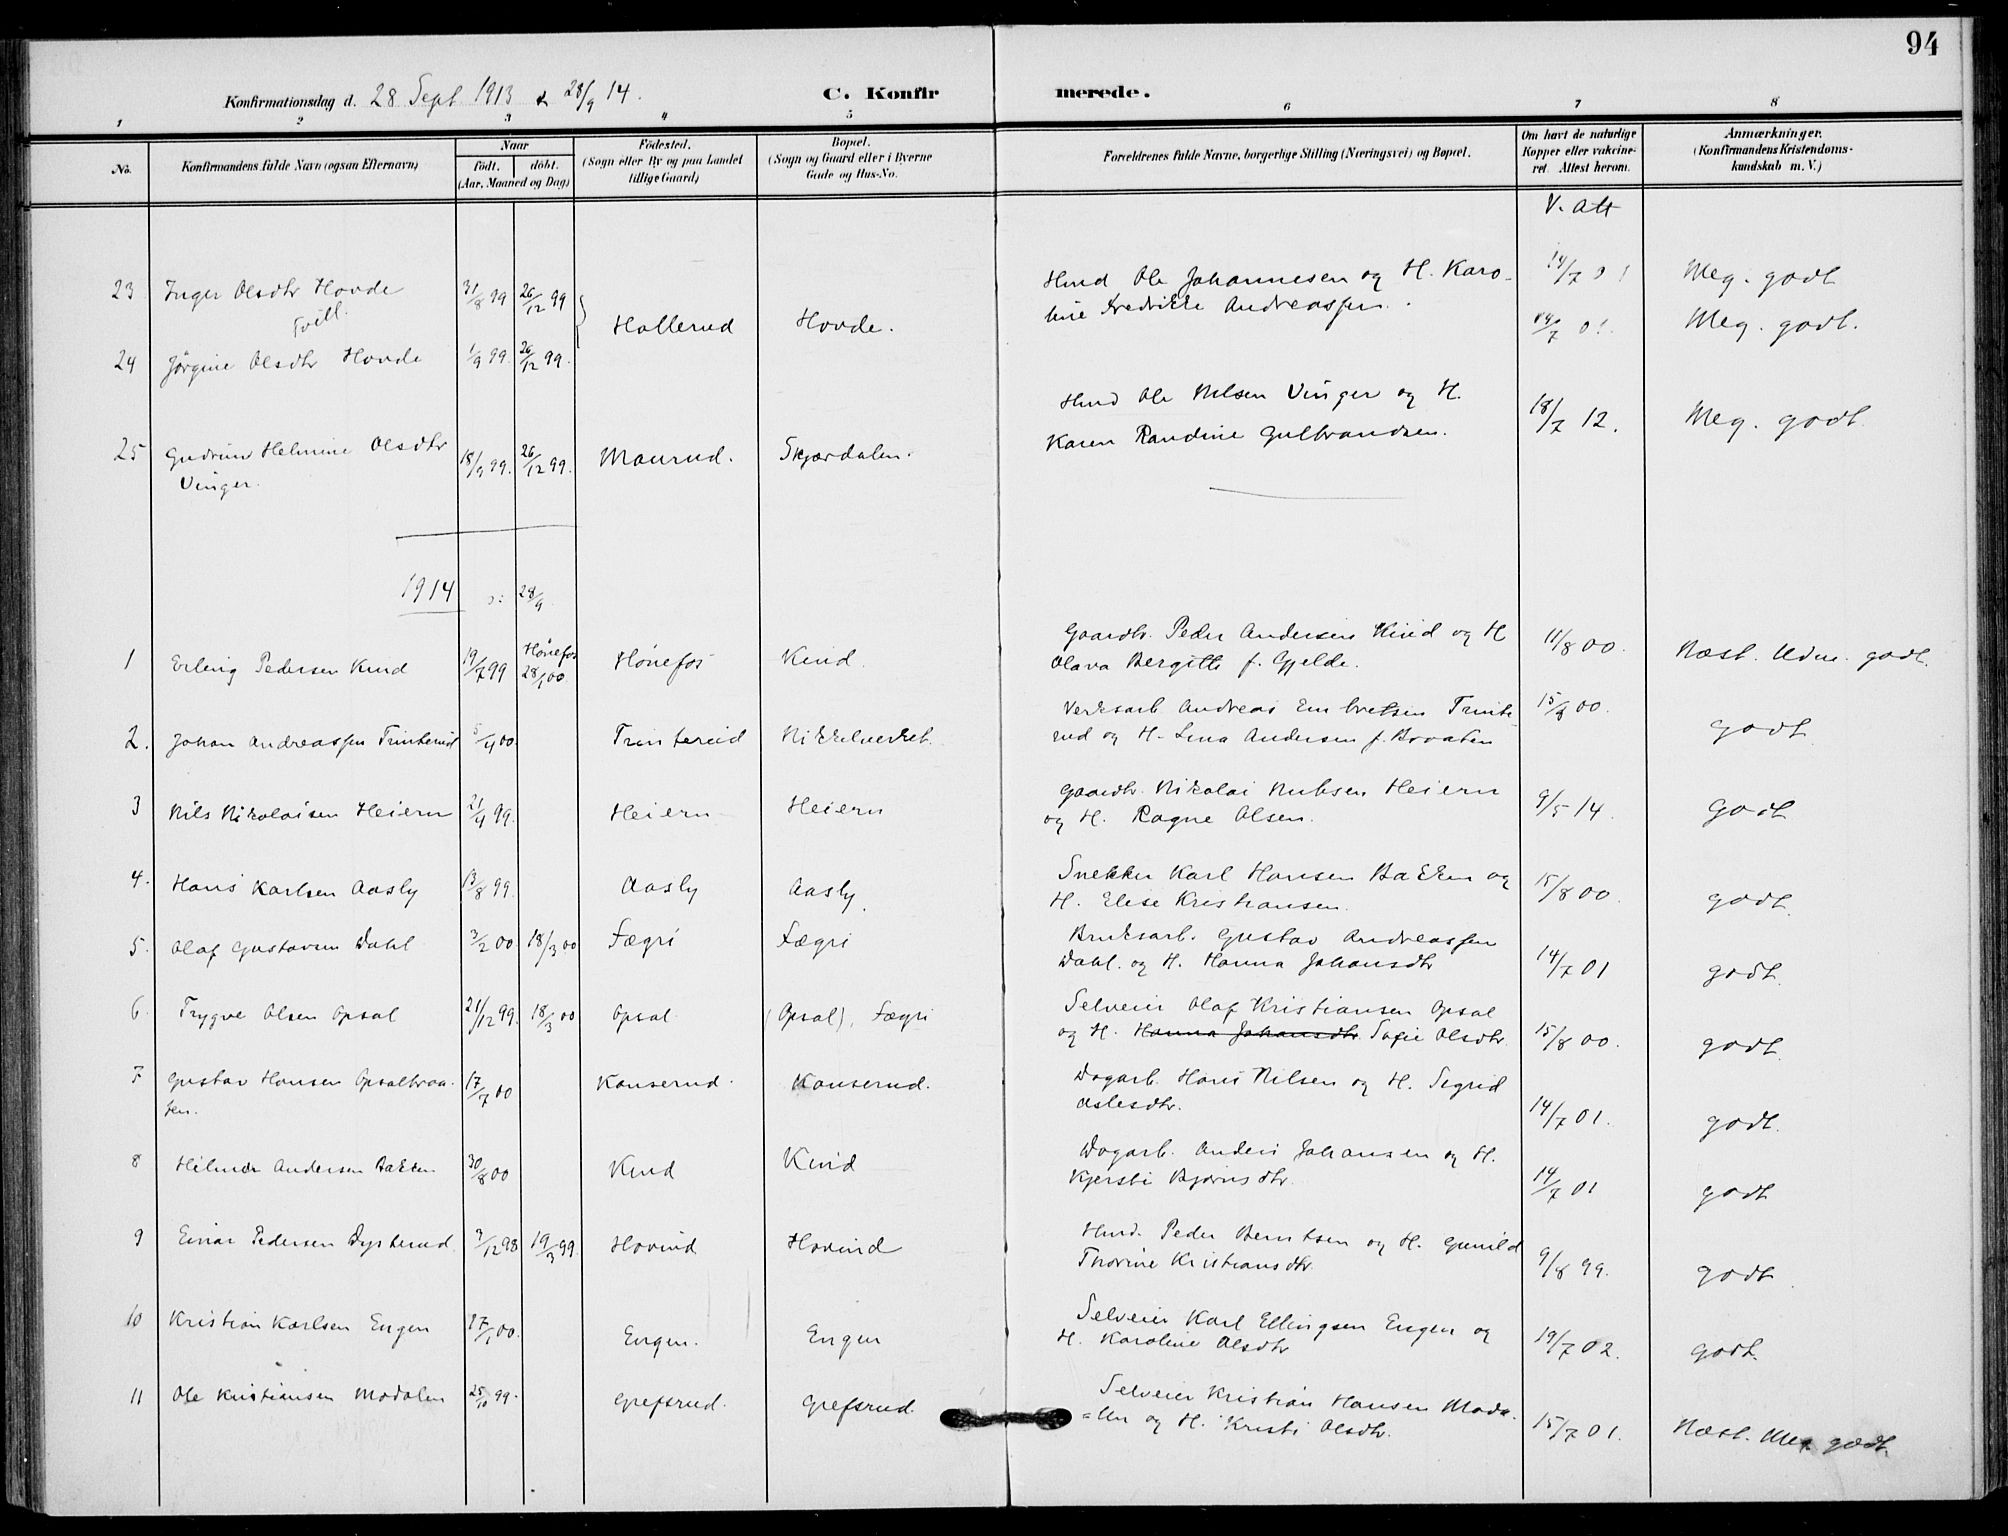 94
Konfirmationsdag d. 28 Sept 1913 & 28/9 14.
C. Konfirmerede.
1 2 3 4 5 6 7 8
No.
Konfirmandens fulde Navn (ogsaa Efternavn)
Naar
födt. döbt.
(Aar, Maaned og Dag)
Födested.
(Sogn eller By og paa Landet
tillige Gaard)
Bopæl.
(Sogn og Gaard eller i Byerne
Gade og Hus-No.
Forældrenes fulde Navne, borgerlige Stilling (Næringsvei) og Bopæl.
Om havt de naturlige
Kopper eller vakcine-
ret. Attest herom.
Anmærkninger.
(Konfirmandens Kristendoms-
kundskab m. V.)
V. att
23 Inger Olsdtr Hovde 31/8 99 26/12 99 Hollerud Hovde. Hmd Ole Johannesen og H. Karo- 14/7 01 Meg. godt
Tvill. line Fredrikke Andreassen. 14/7 01. Meg. godt.
24 Jørgine Olsdtr Hovde 1/9 99. 26/12 99.
25 Gudrun Helmine Olsdtr 18/9 99. 26/12 99. Maurud. Skjærdalen. Hmd Ole Nilsen Vinger og H. 18/7 12. Meg. godt
Vinger. Karen Randine Gulbrandsen.
1914 28/9
1 Erling Pedersen Kind 19/7 99 Hönefos Hönefos Kind. Gaardbr. Peder Andersen Kind og H 11/8 00. Næst. Udm. godt.
28/1 00. Olava Bergitte f. Gjelde.
2. Johan Andreassen Trinterud 5/4 00. Trinterud Nikkelverket. Verksarb Andreas Embretsen Trinte- 15/8 00. godt.
rud og H. Lina Andersen f. Braaten
3 Nils Nikolaisen Heiern 21/4 99. Heiern Heiern Gaardbr. Nikolai Nielsen Heiern 9/5 14. godt
og H. Ragne Olsen.
4. Hans Karlsen Aasly 13/8 99. Aasly Aasly. Snekker Karl Hansen Bakken og 15/8 00. godt.
H. Elise Kristiansen.
5. Olaf Gustavsen Dahl 3/2 00. 18/3 00 Fægri Fægri Bruksarb. Gustav Andreassen 14/7 01 godt.
Dahl. og H. Hanna Johansdtr
6. Trygve Olsen Opsal 21/12 99. 18/3 00 Opsal (Opsal), Fægri Selveier Olaf Kristiansen Opsal 15/8 00. godt.
og H. Hanna Johansdtr. Sofie Olsdtr.
7 Gustav Hansen Opsalbraa- 17/7 00 Kanserud. Kanserud. Dagarb. Hans Nilsen og H. Sigrid 14/7 01. godt.
ten. Aslesdtr.
8 Hilmar Andersen Bakken 30/8 00 Kind Kind Dagarb. Anders Johansen og H. 14/7 01 godt
Kjersti Bjørnsdtr.
9 Einar Pedersen Dysterud. 3/12 98 19/3 99. Hovind Hovind Hmd. Peder Berntsen og H. Gunild 9/8 99. godt
Thorine Kristiansdtr.
10 Kristian Karlsen Engen 27/1 00. Engen. Engen Selveier Karl Ellingsen Engen og 19/7 02. godt.
H. Karoline Olsdtr
11 Ole Kristiansen Modalen 25/10 99. Grefsrud. Grefsrud. Selveier Kristian Hansen Moda- 15/7 01. Næst. Meg. godt.
=len og H. Kristi Olsdtr.